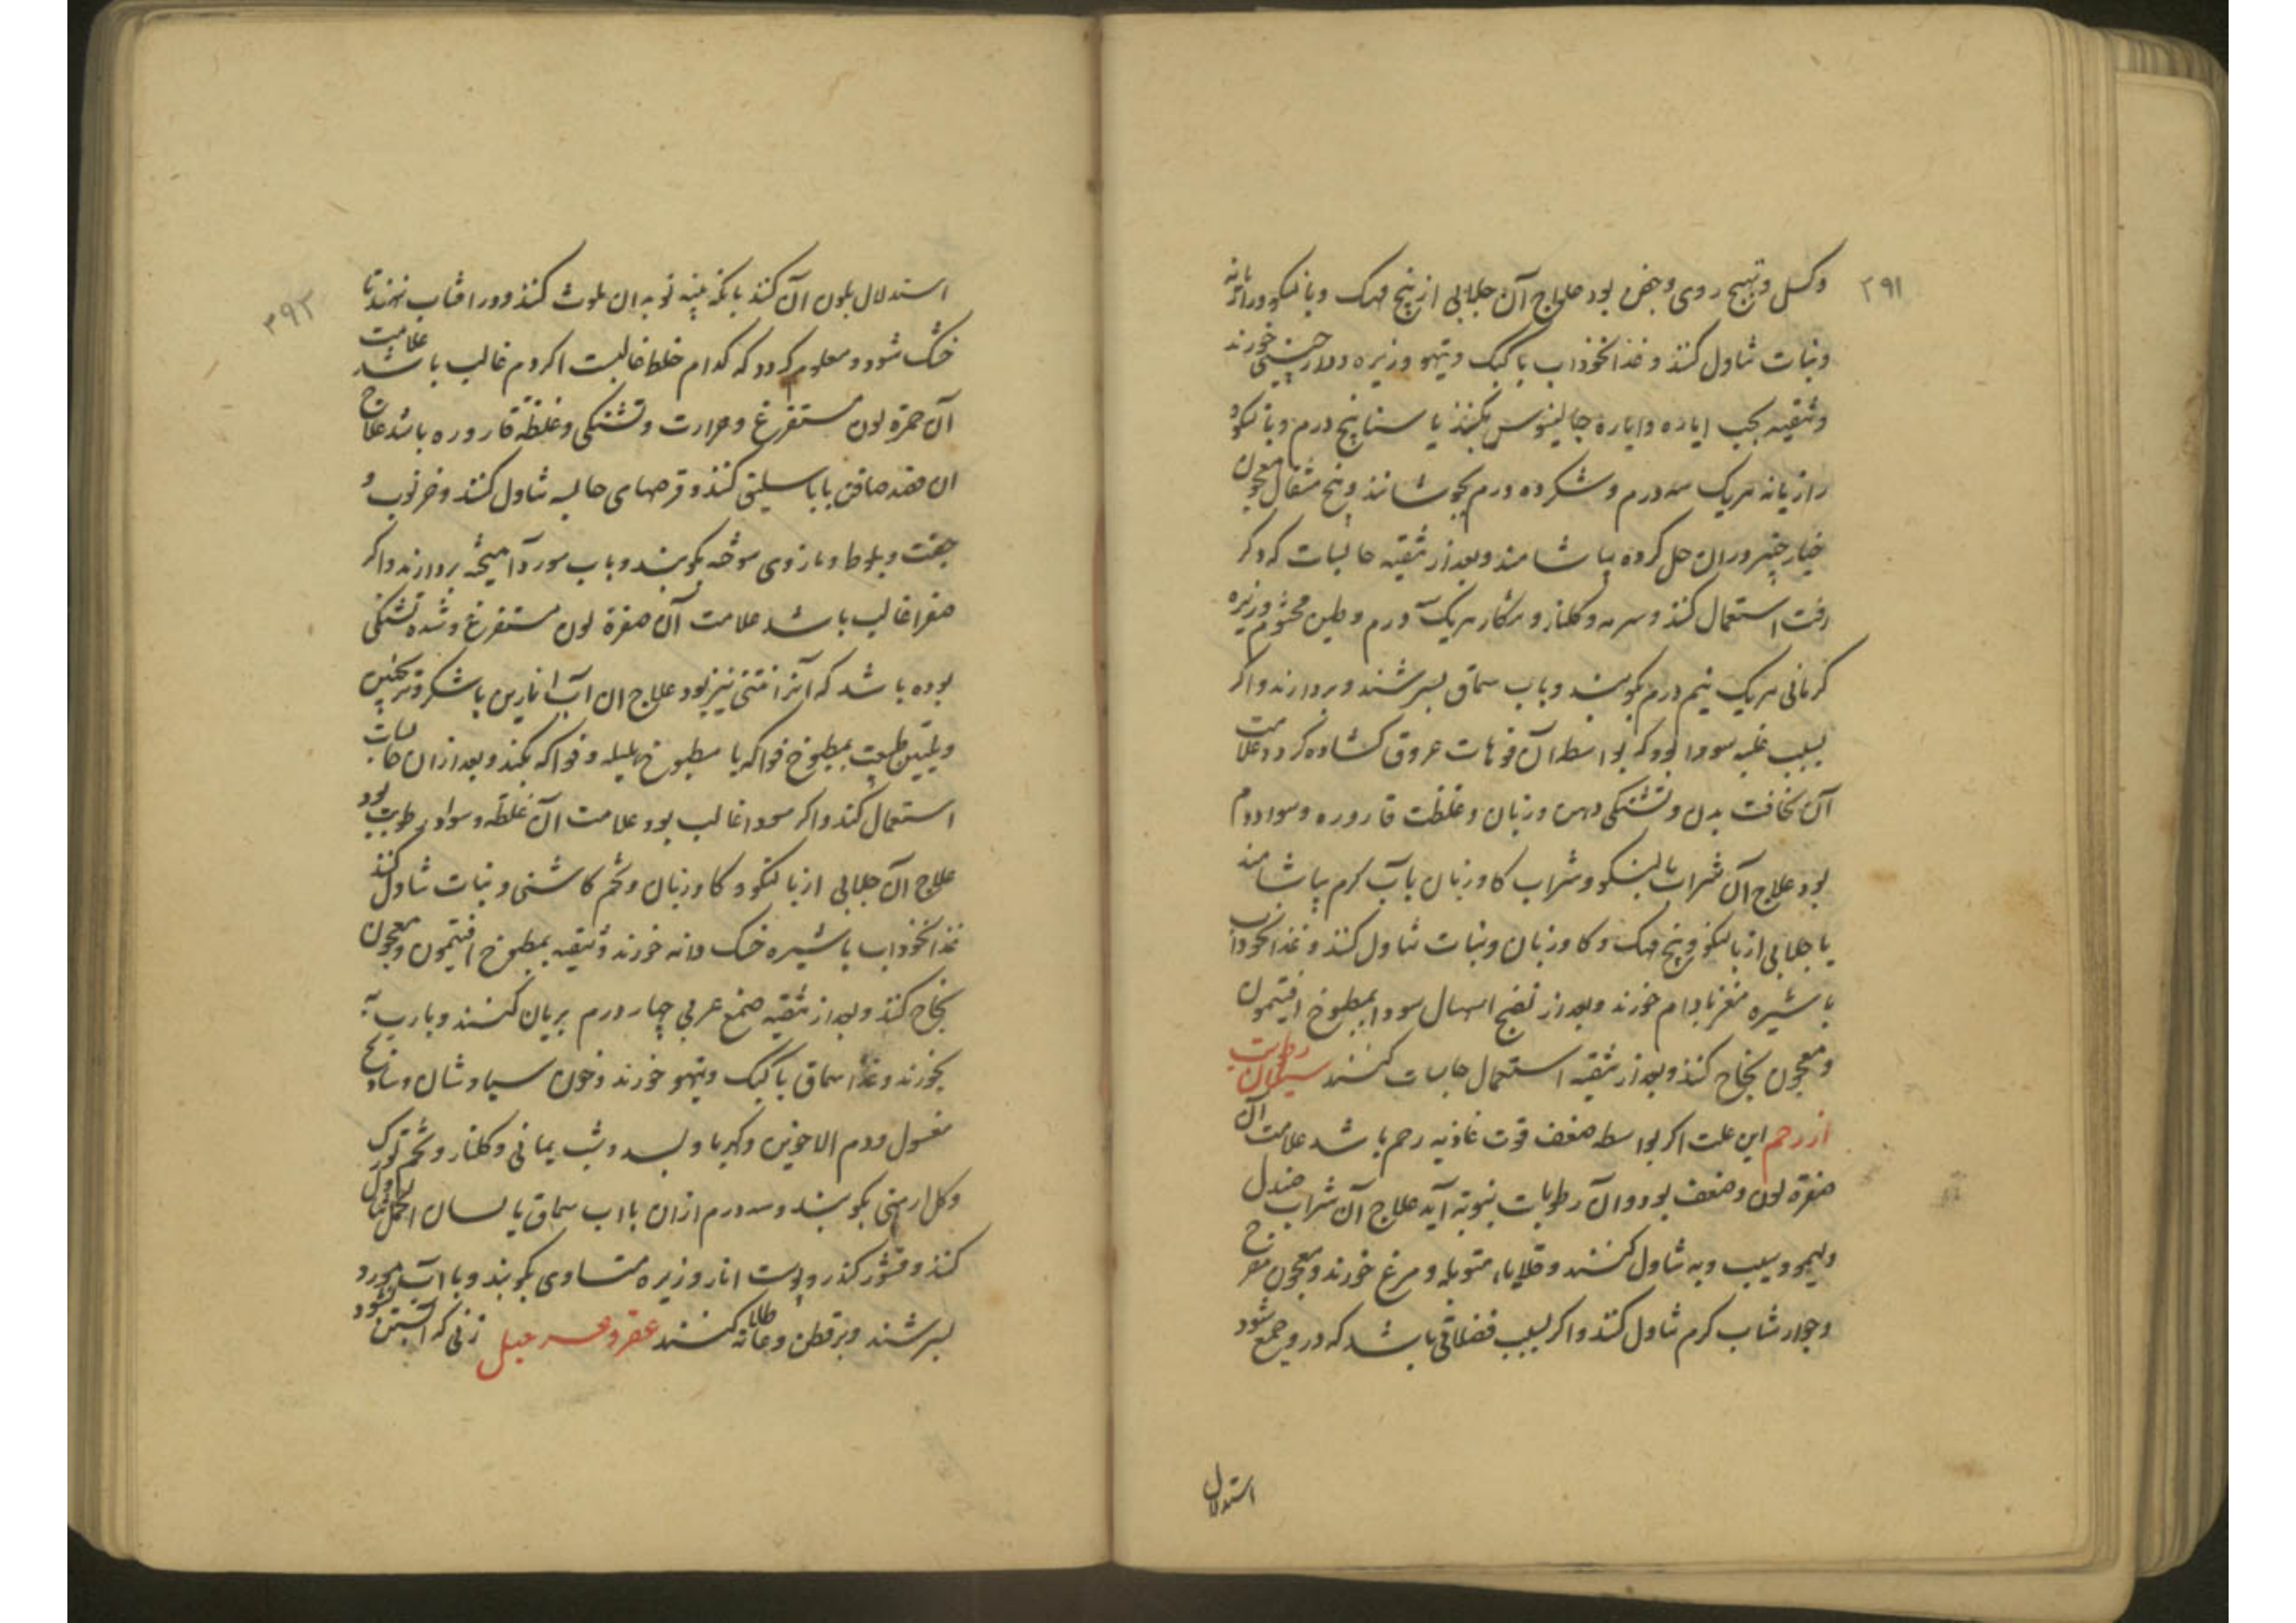 ۲۹۱
وکسل و تهیج روی و جفن بود علاج آن جلابی از بنج مهک و بالنکو و رازیانه
و نبات تناول کنند و غذا نخوداب با کبک و تیهو و زیره و دارچینی خورند
و تنقیه بحب ایاره و ایارۀ جالینوس بکنند یا سنا پنج درم و بالنکو و
رازیانه هریک سه درم و شکر ده درم بجوشانند و پنج مثقال معجون
خیارچنبر دران حل کرده بیاشامند و بعد از تنقیه حابسات که ذکر
رفت استعمال کنند و سرمه و کلنار و هریک درم و طین مختوم و زیره
کرمانی هریک نیم درم بکوبند و باب سماق بسرشند و بردارند و اکر
بسبب غلبه سودا بود که بواسطه آن فوهات عروق کشاده کردد علامت
آن نحافت بدن و تشنکی دهن و زبان و غلظت قاروره و سواد دم
بود علاج آن شراب بالنکو و شراب کاوزبان باب کرم بیاشامند
یا جلابی از بالنکو و بنج مهک و کاوزبان و نبات تناول کنند و غذا نخوداب
با شیره مغز بادام خورند و بعد از نضج اسهال سودا بمطبوخ افتیمون
و معجون نجاح کنند و بعد از تنقیه استعمال حابسات کنند سیلان رطوبت
از رحم این علت اکر بواسطه ضعف قوت غاذیه رحم باشد علامت آن
صفرة لون و ضعف بود و آن رطوبات بنوبه آید علاج آن شراب صندل
و لیمو و سیب و به تناول کنند و قلایاء متوبله و مرغ خورند و معجون مفرح
و جوارشاب کرم تناول کنند و اکر بسبب فضلاتی باشد که در وجمع شود
استدلال
۲۹۲
استدلال بلون آن کنند بانکه پنبه نو بدان ملوث کنند و در افتاب نهند تا
خشک شود و معلوم کردد که کدام خلط غالبست اکر دم غالب باشد علامت
آن حمرة لون مستفرغ و حرارت و تشنکی و غلظة قاروره باشد علاج
ان فصد صافن یا باسلیق کنند و قرصهای حابسه تناول کنند و خرنوب و
جفت و بلوط و مازوی سوخته بکوبند و باب مورد آمیخته بردارند و اکر
صفرا غالب باشد علامت آن صفرة لون مستفرغ و شدة تشنکی
بوده باشد که انرا نتنی نیز بود علاج ان آب انارین باشکر و ترنجبین
و تلیین طبیعت بمطبوخ فواکه یا مطبوخ هلیله و فواکه بکنند و بعد ازان حابسات
استعمال کنند و اکر سودا غالب بود علامت آن غلظة و سواد رطوبت بود
علاج آن جلابی از بالنکو و کاوزبان و تخم کاشنی و نبات تناول کنند
غذا نخوداب با شیره خسک دانه خورند و تنقیه بمطبوخ افتیمون و معجون
نجاح کنند و بعد از تنقیه صمغ عربی چهار درم بریان کنند و بارب به
بخورند و غذا سماق با کبک و تیهو خورند و خون سیاوشان و شادنج
مغسول و دم الاخوین و کهربا و بسد و شب یمانی و کلنار و تخم تورک
و کل ارمنی بکوبند و سه درم ازان باآب سماق یا لسان الحمل تناول
کنند و قشور کندر و پوست انار و زیره متساوی بکوبند و با آب مورد
بسرشند و بر قطن و عانه طلا کنند عقر و عسر حبل زنی که آبستن نشود